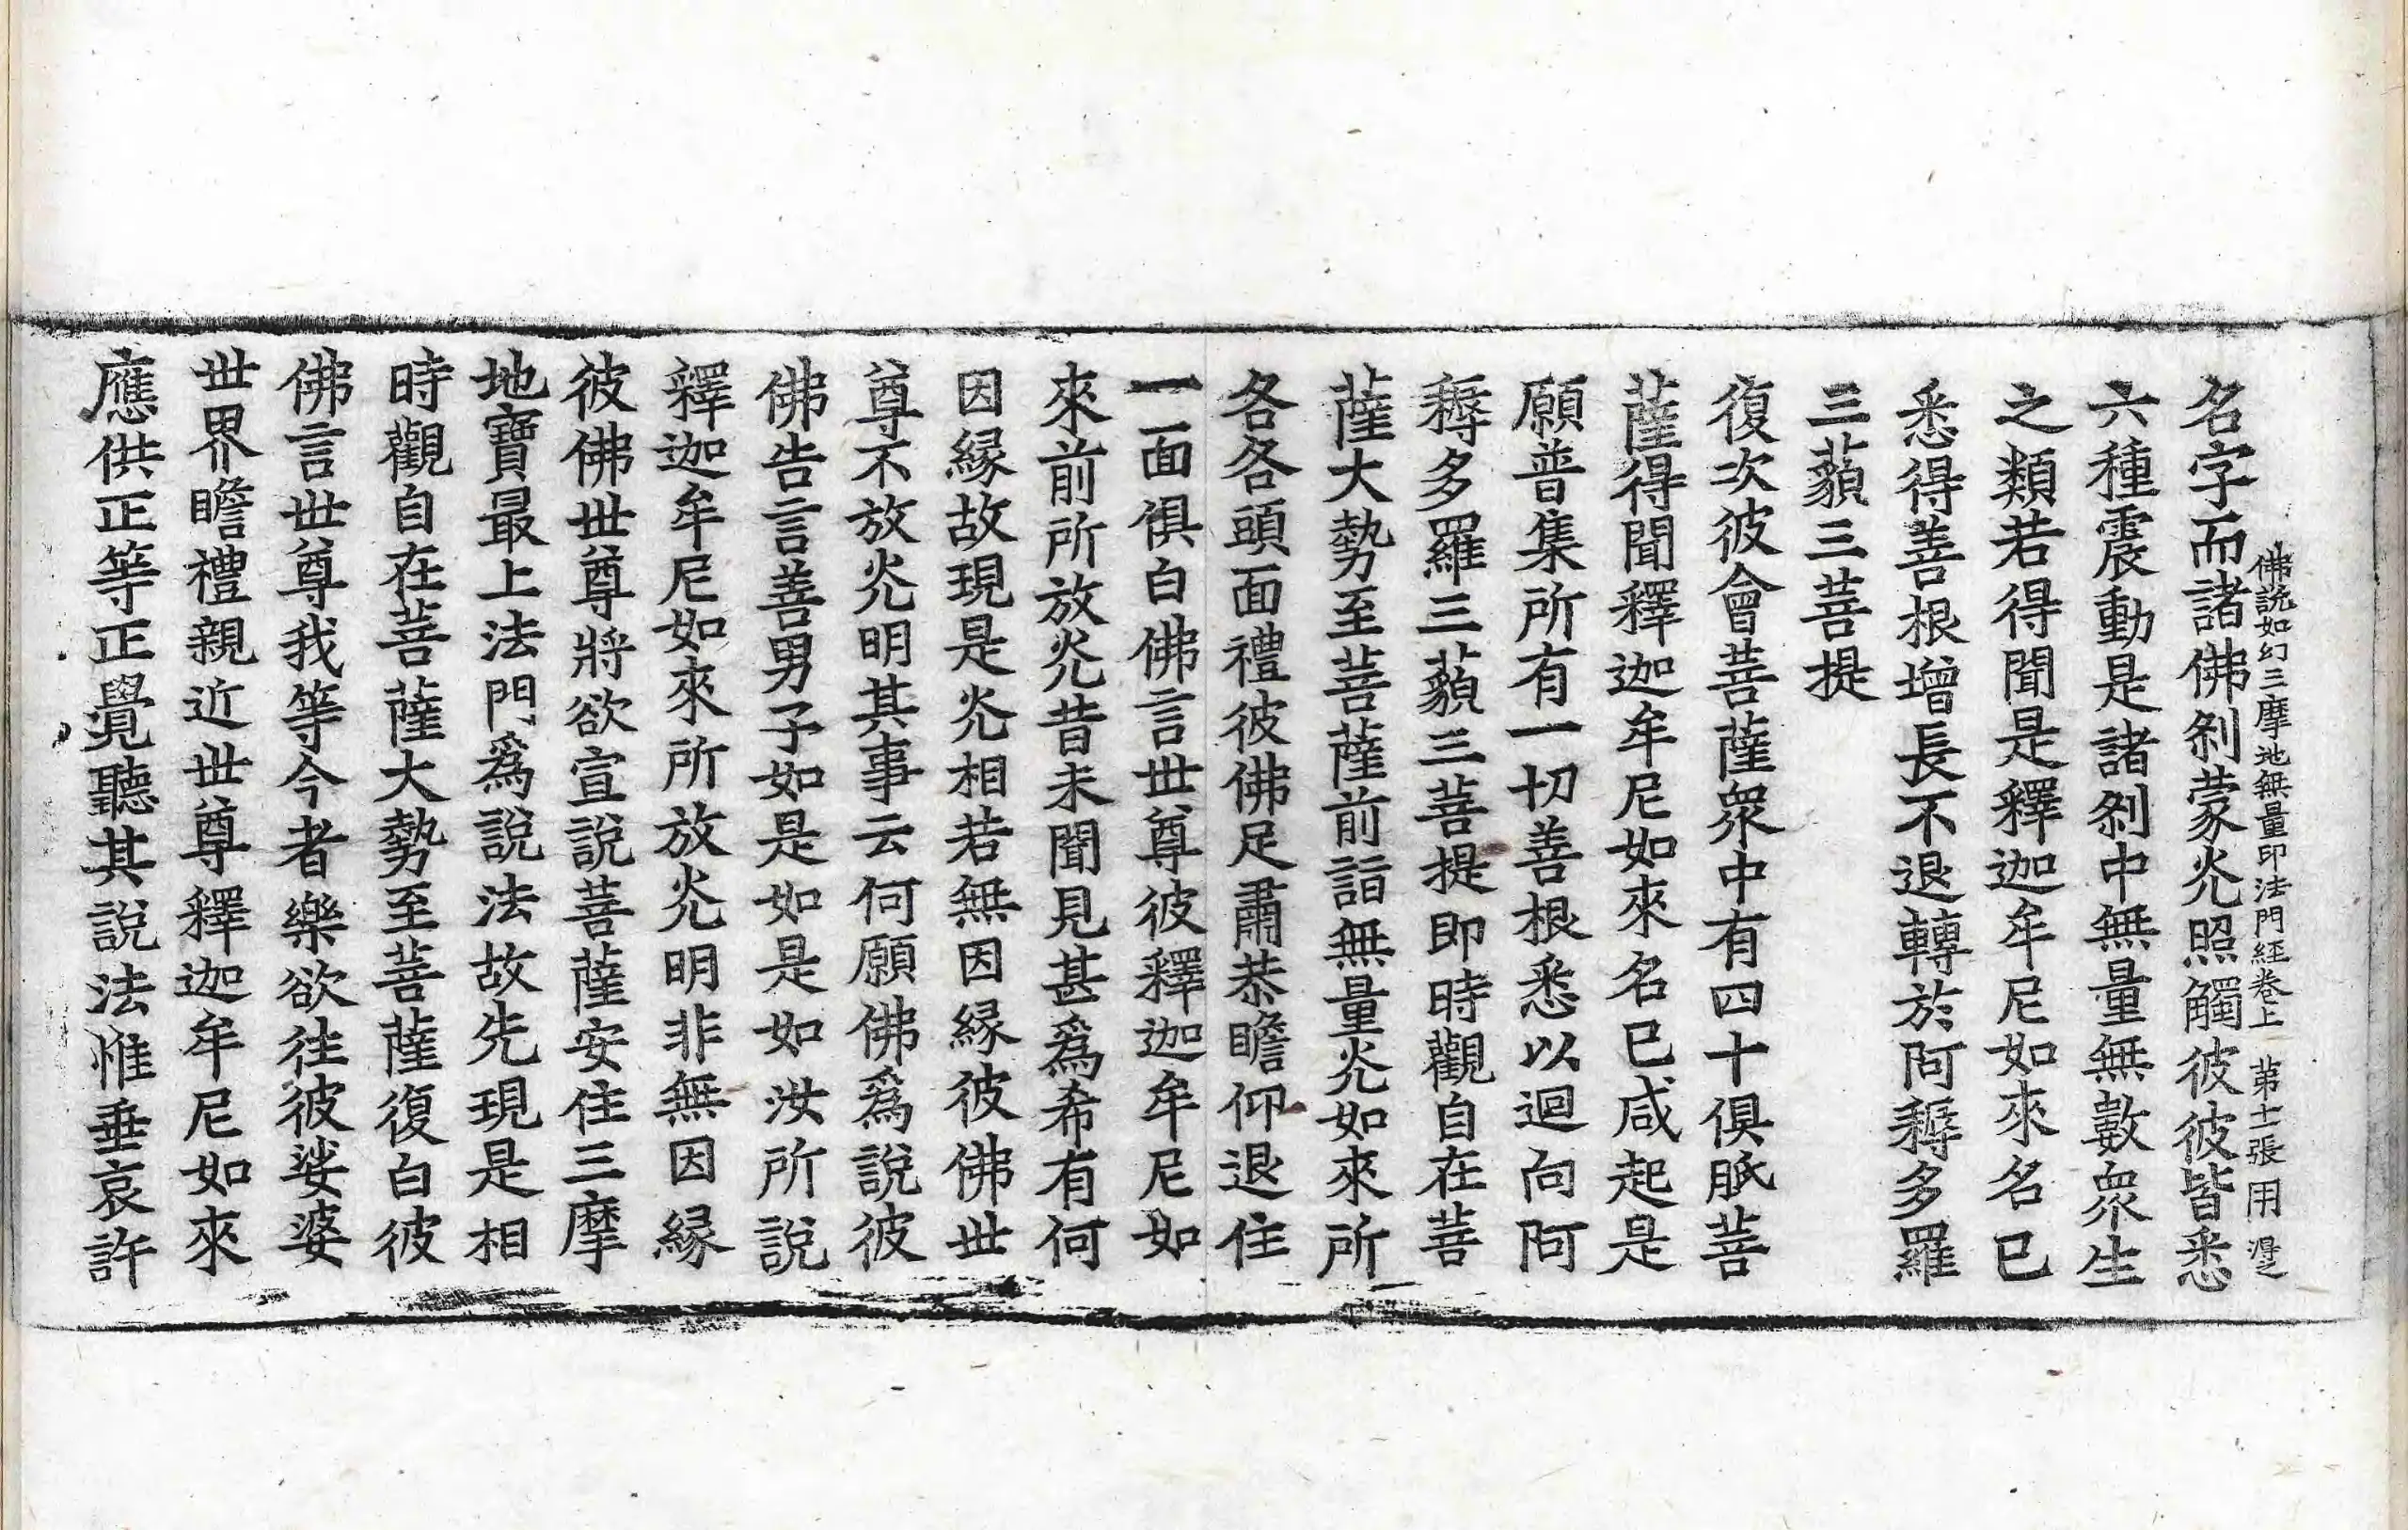 佛說如幻三摩地無量印法門經卷上 苐十二張 用 得之
名字而諸佛剎蒙炗照觸彼彼皆悉
六種震動是諸剎中無量無數衆生
之類若得聞是釋迦牟尼如來名已
悉得善根增長不退轉於阿耨多羅
三藐三菩提
復次彼會菩薩衆中有四十俱胝菩
薩得聞釋迦牟尼如來名已咸起是
願普集所有一切善根悉以迴向阿
耨多羅三藐三菩提即時觀自在菩
薩大勢至菩薩前詣無量炗如來所
各各頭面禮彼佛足肅恭瞻仰退住
一面俱白佛言世尊彼釋迦牟尼如
來前所放炗昔未聞見甚爲希有何
因緣故現是炗相若無因緣彼佛世
尊不放炗明其事云何願佛爲說彼
佛告言善男子如是如是如汝所說
釋迦牟尼如來所放炗明非無因緣
彼佛世尊將欲宣說菩薩安住三摩
地寶最上法門爲說法故先現是相
時觀自在菩薩大勢至菩薩復白彼
佛言世尊我等今者樂欲往彼娑婆
世界瞻禮親近世尊釋迦牟尼如來
應供正等正覺聽其說法惟垂哀許